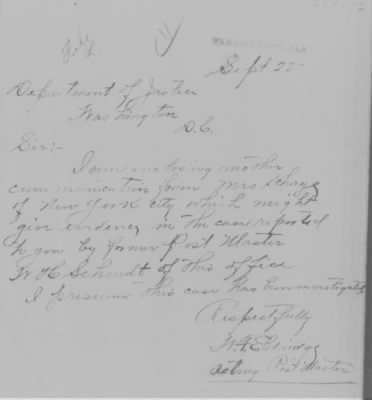 Sept 22
Department of Justice
Washington
D.C.
Sir:-
I am inclosing another
communication from Mrs Schagg
of New York city which might
give evidence in the case reported
to you by former Post Master
W H Schmdt of this office
I presume this case has been investigated
Respectfully
Eldridge
Acting Post Master